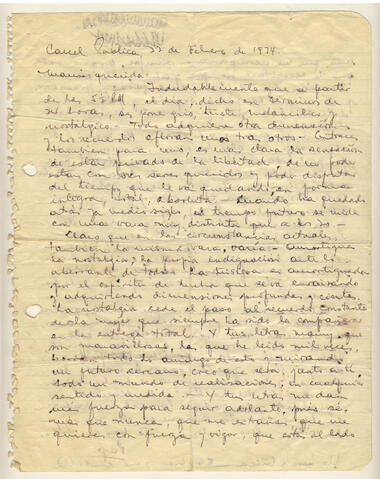 Carcel Pública 22 de Febrero de 1974.
querida
Indudablemente que a partir
de las 5½ PM, el día, dicho en términos de
24 horas, se pone gris, triste, melancólico y
nostálgico. Todo adquiere otra dimensión
los recuerdos afloran uno tras otros. Entonces
para uno, es más clara la sensación
de estar privado de la libertad, de no poder
estar con los seres queridos y poder disfrutar
del tiempo que le va quedando en forma
íntegra, total, absoluta. Cuando ha quedado
atrás ya medio siglo, el tiempo futuro se mide
con una vara muy distinta que a los 20.-
Claro que en las circunstancias actuales
también la misma vara varía - amortigua
la nostalgia, la propia indignación ante lo
aberrante de todo. La tristeza es amortiguada
por el espíritu de lucha que se va enraizando
y adquiriendo dimensiones profundas y ciertas.
La nostalgia cede el paso al recuerdo constante
de la mujer que siempre ha sido la compañera
en la entrega total. Y tus letras,
son maravillosas, las que he leído mil veces
todo lo amargo de esto y mirando
un futuro cercano, creo que será, junto a
todo un mundo de realizaciones, en cualquier
sentido y medida. - Y tus letras me dan
más fuerzas para seguir adelante, pues sé
más que nunca, que me extrañas, que me
quieres con fuerza y vigor, que estás al lado